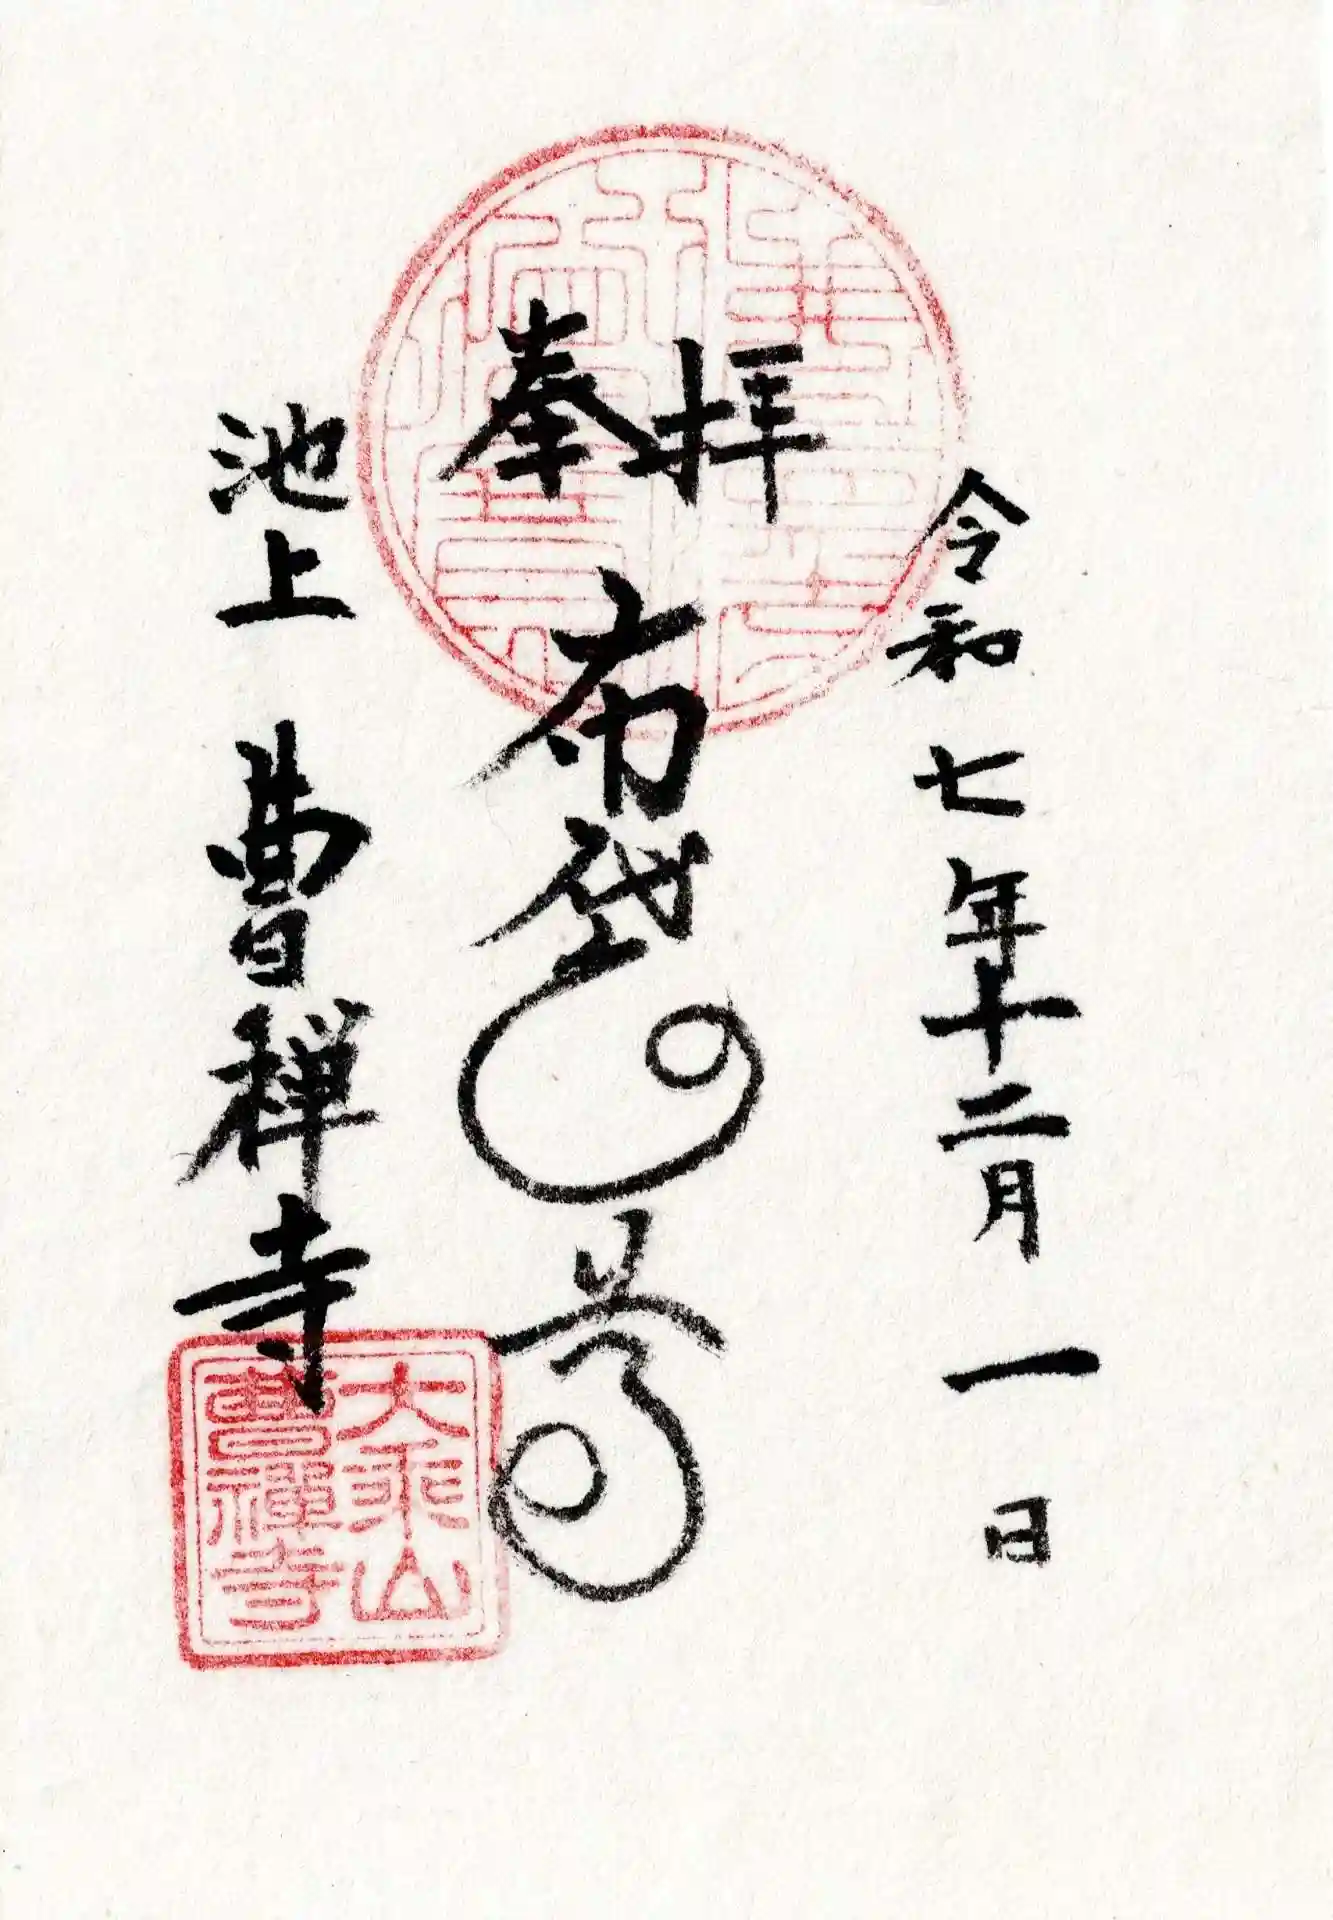 令和七年十二月一日
奉拝
布袋尊
池上 曹禅寺
大乘山
曹禅寺